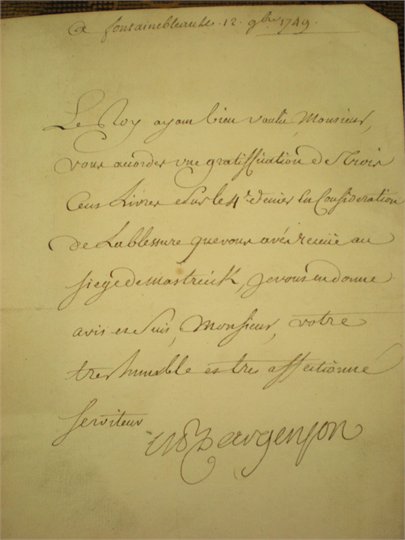 A fontainebleau le 12. 9bre 1749.
Le Roy ayant bien voulu Monsieur,
vous accorder une gratiffication de Trois
Cens Livres sur le 4e. denier en Consideration
de La blessure que vous avés receüe au
siege de Mastreick, je vous en donne
avis et suis, Monsieur, votre
tres humble et tres affectionné
serviteur
M D'argenson